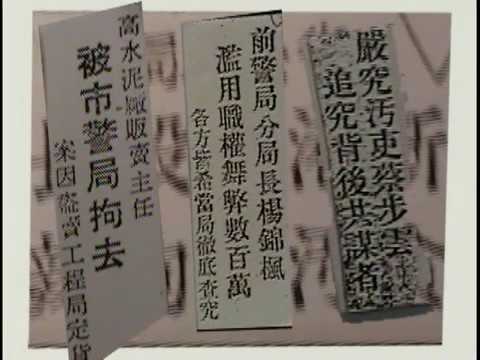 嚴究汚吏蔡步雲
追究背後共謀者
前警局分局長楊錦楓
濫用職權舞弊數百萬
各方皆希當局徹底查究
高水泥廠販賣主任
被市警局拘去
案因盜賣工程局定貨